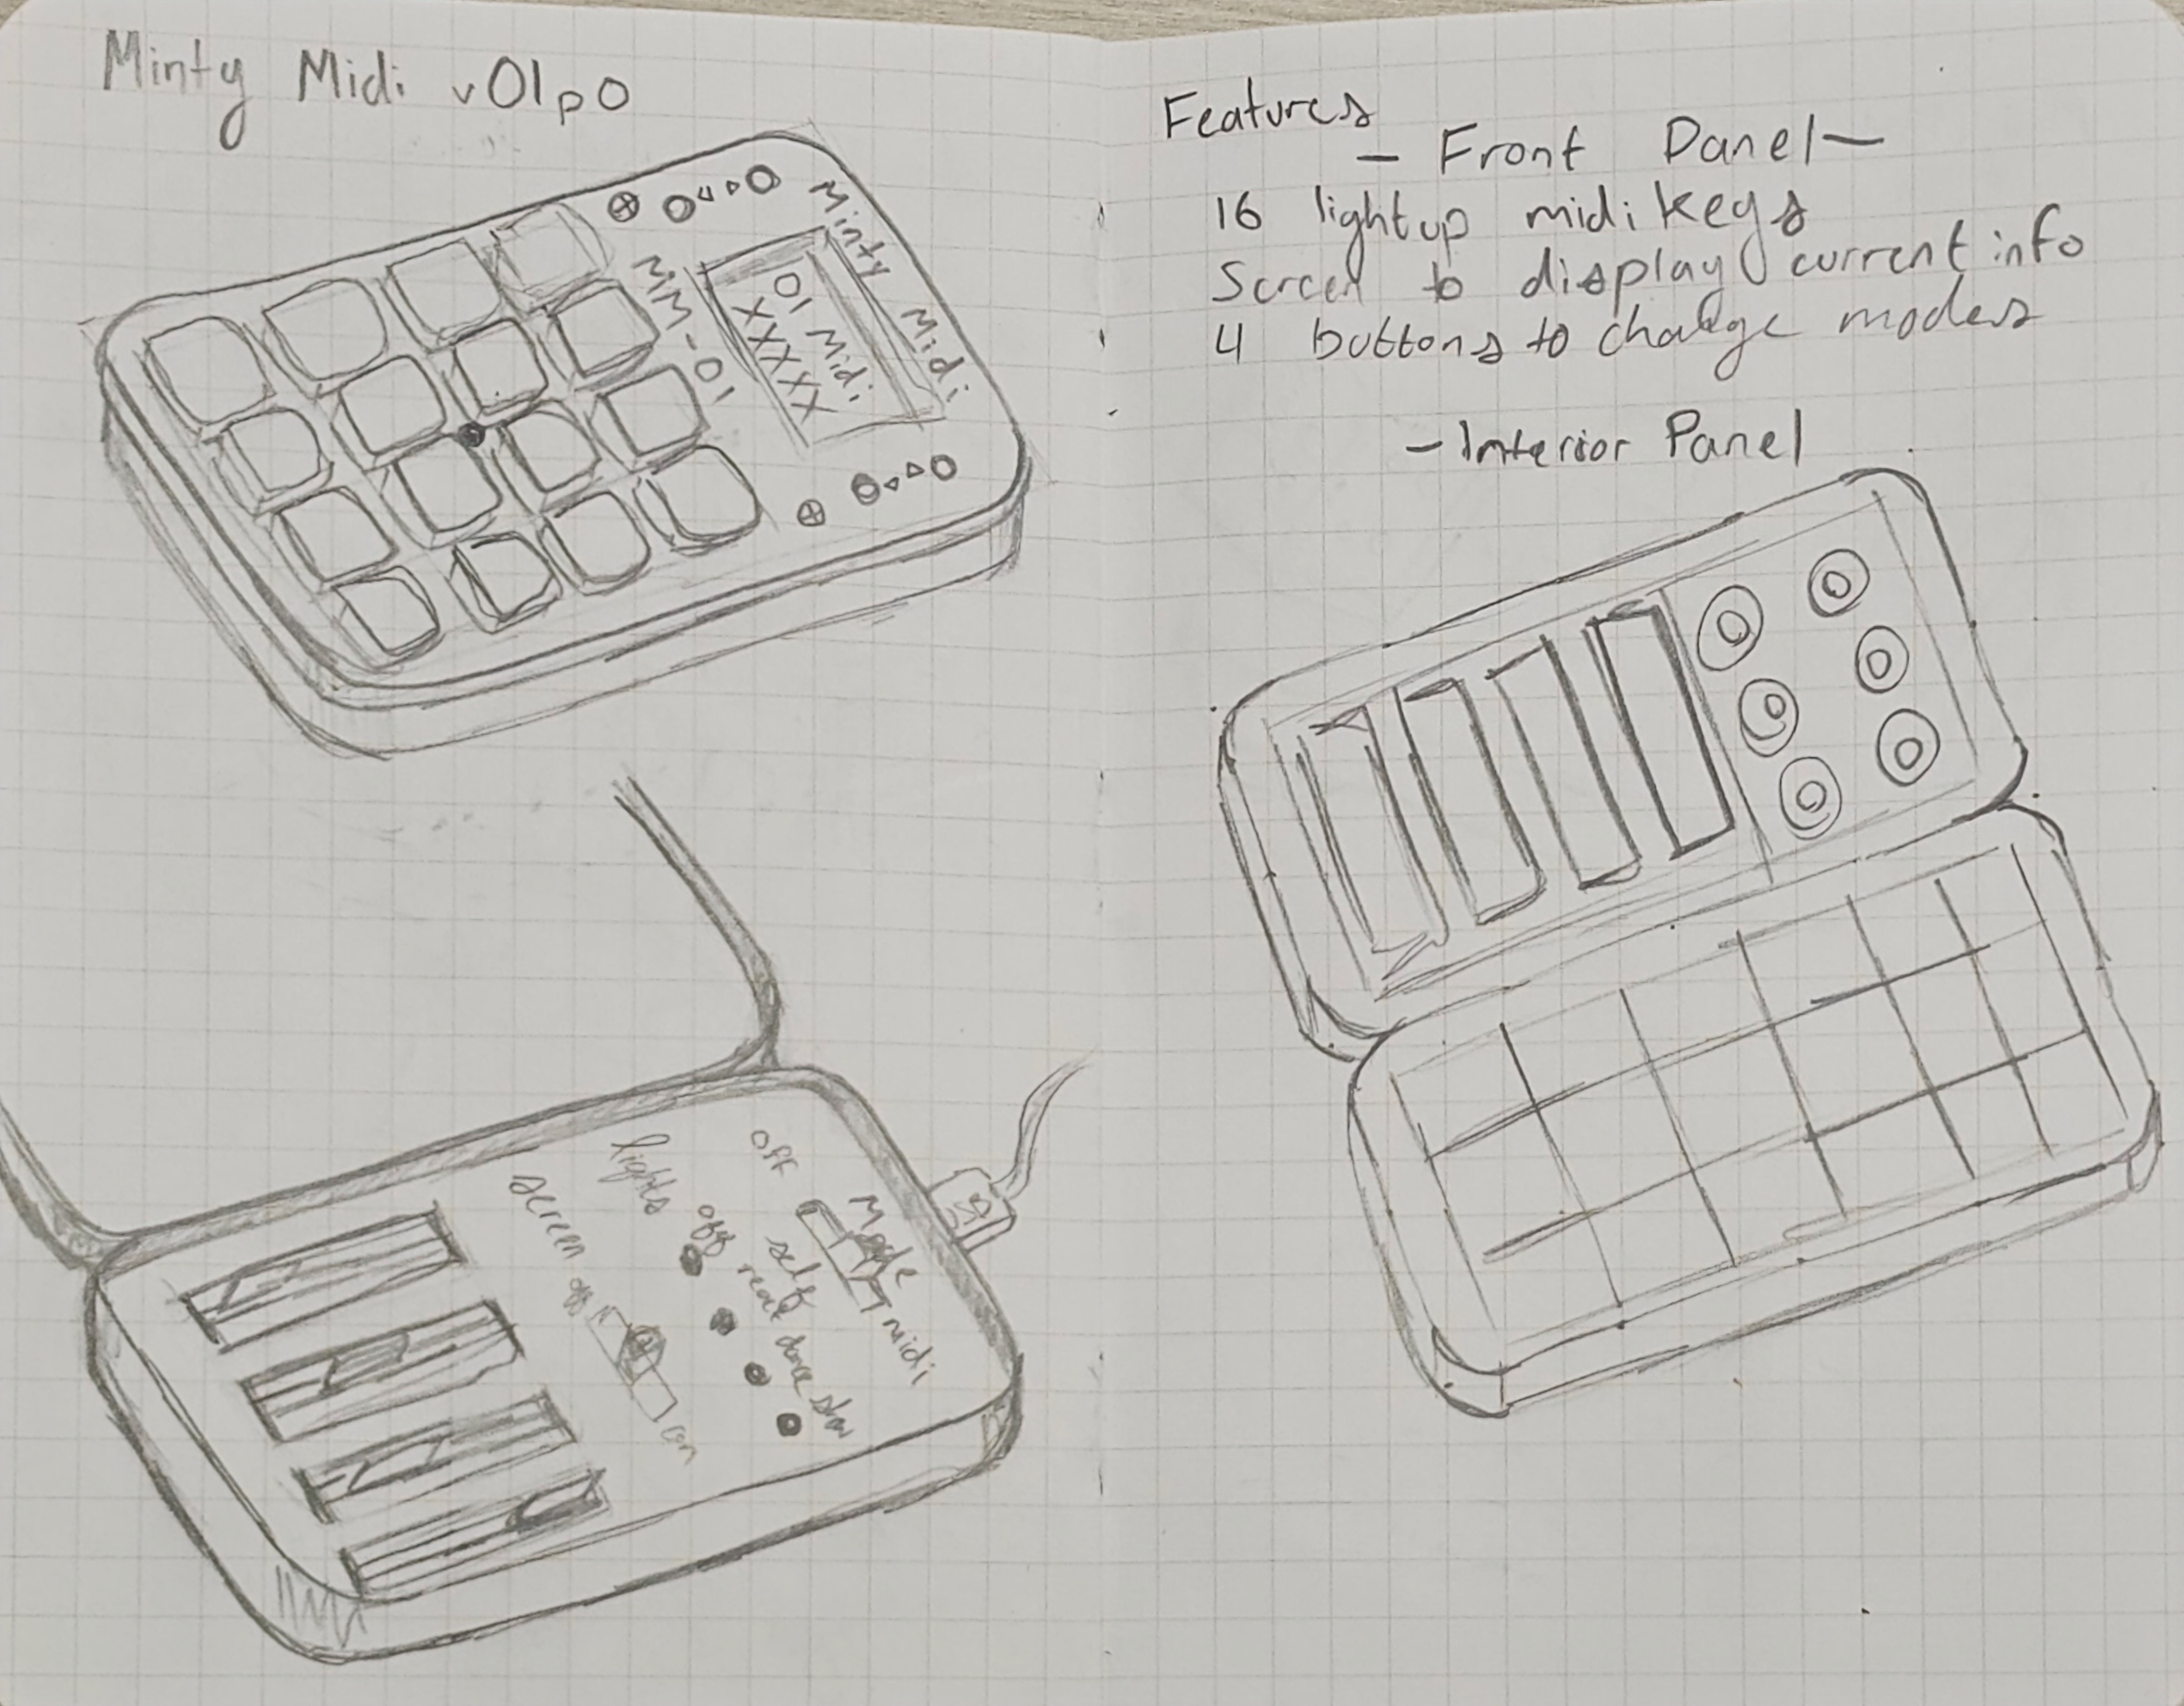 Minty Midi v01p0
Minty Midi
01 Midi
XXXXX
MM-01
Features
- Front Panel -
16 lightup midi keys
Screen to display current info
4 buttons to change modes
- Interior Panel
Mode
off
midi
lights
off
self
react
screen
off
on